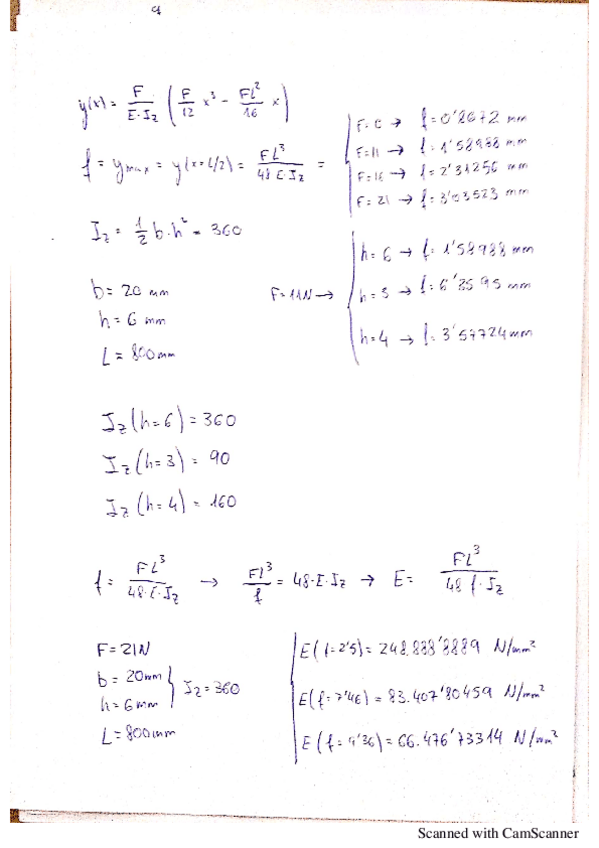 y(x) = F/(E·Iz) (F/12 x³ - Fl²/16 x)
f = ymax = y(x=L/2) = FL³/(48·E·Iz) =
F= 6 → f = 0'8672 mm
F=11 → f = 1'58988 mm
F=16 → f = 2'31256 mm
F= 21 → f = 3'03523 mm
Iz = 1/2 b·h² = 360
b = 20 mm
h = 6 mm
L = 800mm
F=11N →
h= 6 → f= 1'58988 mm
h= 3 → f= 6'3595 mm
h=4 → f= 3'57724 mm
Iz (h=6) = 360
Iz (h=3) = 90
Iz (h=4) = 160
f = FL³/(48·E·Iz) → Fl³/f = 48·E·Iz → E= FL³/(48 f·Iz)
F=21N
b = 20mm
h=6mm
Iz=360
L=800mm
E(f=2'5)= 248.888'8889 N/mm²
E(f=7'46) = 83.407'80459 N/mm²
E(f=9'36)=66.476'73314 N/mm²
Scanned with CamScanner